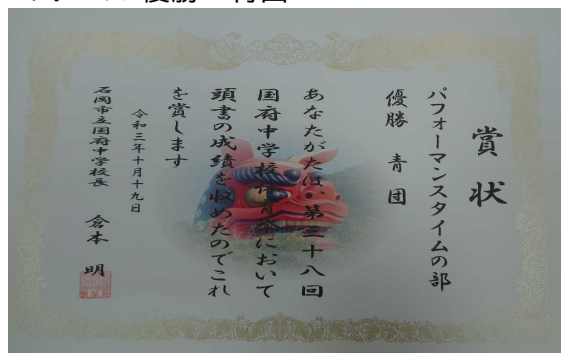 賞状
パフォーマンスタイムの部
優勝 青団
あなたがたは、第三十八回
国府中学校体育祭において
頭書の成績を収めたのでこれ
を賞します
令和三年十月十九日
石岡市立国府中学校長 倉本 明